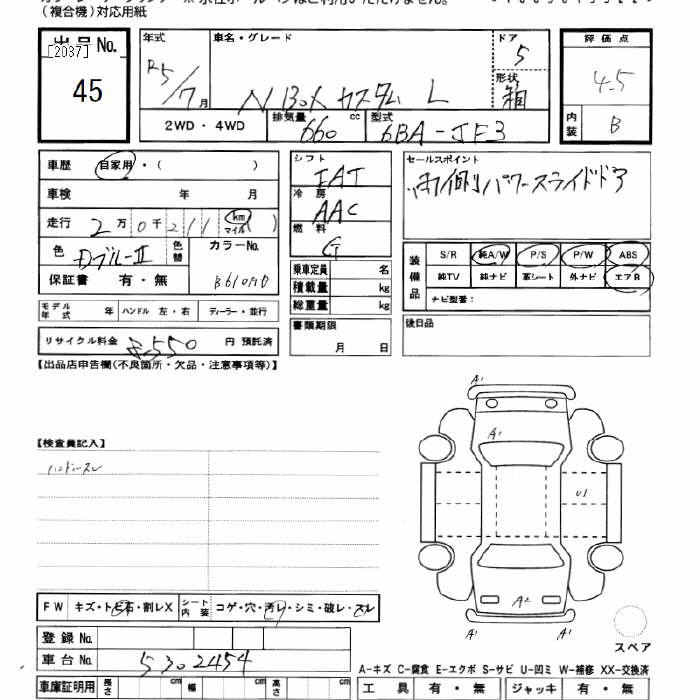 (複合機)対応用紙
出品No.
[2037]
45
年式
R5/7月
車名・グレード
N BOX カスタム L
ドア
5
形状
箱
評価点
4.5
内装
B
2WD・4WD
排気量 660 cc
型式 6BA-JF3
車歴 自家用・( )
車検 年 月
走行 2万0千211 km マイル ( )
色
色替
カラーNo.
保証書 有・無
シフト
冷房 AAC
燃料 G
乗車定員 名
積載量 kg
総重量 kg
書類期限
月 日
セールスポイント
両側パワースライドドア
装備品
S/R 純A/W P/S P/W ABS
純TV 純ナビ 革シート 外ナビ エアB
ナビ型番:
後日品
モデル年式 年 ハンドル 左・右 ディーラー・並行
リサイクル料金 円 預託済
【出品店申告欄(不良箇所・欠品・注意事項等)】
【検査員記入】
ハンドルスレ
A1
A1
U1
A2
A1
スペア
FW キズ・トビ石・割レX シート内装 コゲ・穴・汚レ・シミ・破レ・スレ
登録No.
車台No. 5302454
車庫証明用 長さ cm 幅 cm 高さ cm
A-キズ C-腐食 E-エクボ S-サビ U-凹ミ W-補修 XX-交換済
工具 有・無 ジャッキ 有・無